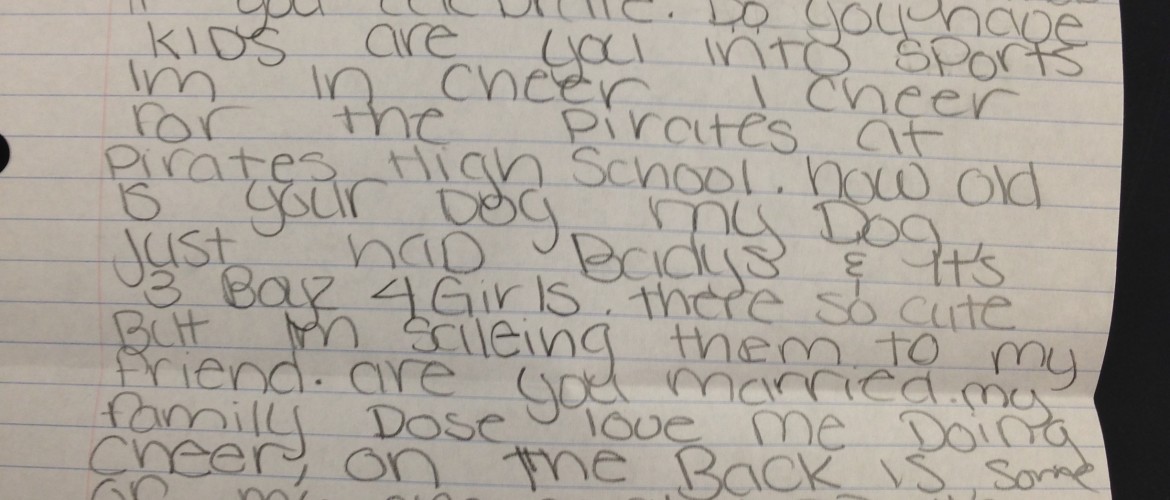 you Do you have
KIDS are you into sports
Im in cheer I cheer
For the pirates at
Pirates High School. how old
is your Dog my Dog
Just had Badys & It's
3 Boyz 4 Girls. there so cute
But Im salleing them to my
friend. are you married. my
family Dose love me Doing
Cheer, on the Back is some